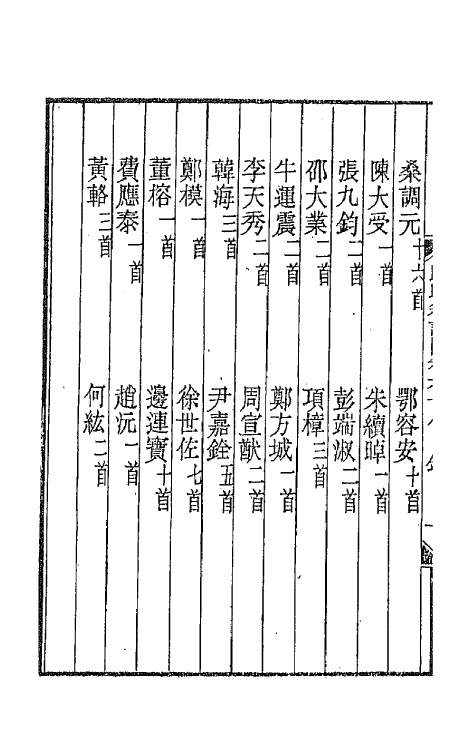 桑調元十六首　鄂容安十首
陳大受一首　朱續晫一首
張九鈞二首　彭端淑二首
邵大業二首　項樟三首
牛運震二首　鄭方城一首
李天秀二首　周宣猷二首
韓海三首　尹嘉銓五首
鄭模一首　徐世佐七首
董榕一首　邊連寶十首
費應泰一首　趙沅一首
黃輅三首　何紘二首